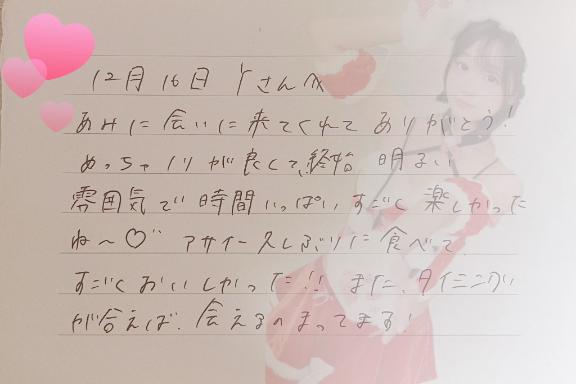 12月16日 Yさんへ
あみに会いに来てくれてありがとう!
めっちゃノリが良くて、終始 明るい
雰囲気で時間いっぱいすごく楽しかった
ね〜♡ アサイー久しぶりに食べて
すごくおいしかった!! また、タイミング
が合えば、会えるのまってます!